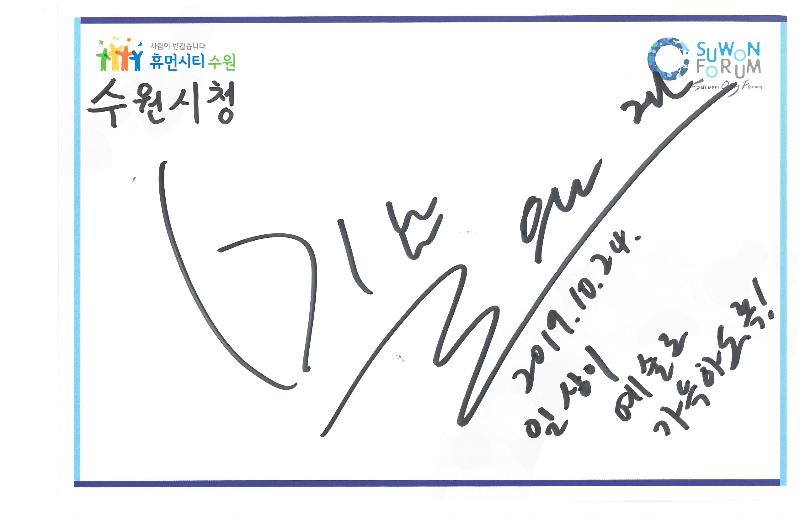 사람이 반갑습니다
휴먼시티 수원
SUWON
FORUM
수원시청
2019.10.24.
일상이
예술로
가득하도록!